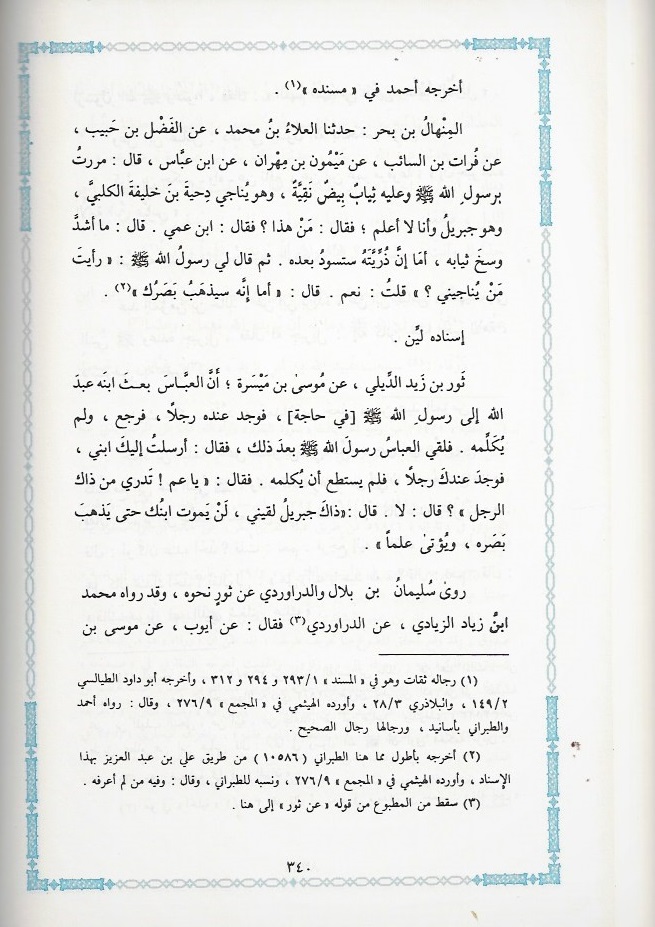 أخرجه أحمد في « مسنده »(١) .
المِنْهالُ بن بحر : حدثنا العلاءُ بنُ محمد ، عن الفَضْل بن حَبيب ،
عن فُرات بن السائب ، عن مَيْمُون بن مِهْران ، عن ابن عبَّاس ، قال : مررتُ
برسولِ الله ﷺ وعليه ثِيابٌ بِيضٌ نَقِيَّةٌ ، وهو يُناجي دِحيةَ بنَ خليفةَ الكلبيَّ ،
وهو جبريلُ وأنا لا أعلم ؛ فقال : مَنْ هذا ؟ فقال : ابن عمي . قال : ما أشدَّ
وسخَ ثيابه ، أمَا إنَّ ذُرِّيَّتَه ستسودُ بعده . ثم قال لي رسولُ الله ﷺ : « رأيتَ
مَنْ يُناجيني ؟ » قلتُ : نعم . قال : « أما إنَّه سيذهَبُ بَصَرُك »(٢) .
إسناده ليِّن .
ثَور بن زَيد الدِّيلي ، عن مُوسىٰ بن مَيْسَرة ؛ أنَّ العبَّاسَ بعثَ ابنَه عبدَ
الله إلى رسولِ الله ﷺ [في حاجة] ، فوجد عنده رجلًا ، فرجع ، ولم
يُكَلِّمه . فلقي العباسُ رسولَ الله ﷺ بعدَ ذلك ، فقال : أرسلتُ إليكَ ابني ،
فوجدَ عندكَ رجلًا ، فلم يستطع أن يُكلمه . فقال : « يا عم ! تَدري من ذاك
الرجل » ؟ قال : لا . قال :«ذاكَ جبريلُ لقيني ، لَنْ يَموت ابنُك حتى يَذهبَ
بَصَره ، ويُؤتىٰ علماً » .
روىٰ سُليمانُ بن بلال والدراوردي عن ثورٍ نحوه ، وقد رواه محمد
ابنُ زياد الزيادي ، عن الدراوردي(٣) فقال : عن أيوب ، عن موسى بن
(١) رجاله ثقات وهو في « المسند » ٢٩٣/١ و ٢٩٤ و ٣١٢ ، وأخرجه أبو داود الطيالسي
١٤٩/٢ ، والبلاذري ٢٨/٣ ، وأورده الهيثمي في « المجمع » ٢٧٦/٩ ، وقال : رواه أحمد
والطبراني بأسانيد ، ورجالها رجال الصحيح .
(٢) أخرجه بأطول مما هنا الطبراني (١٠٥٨٦) من طريق علي بن عبد العزيز بهذا
الإسناد ، وأورده الهيثمي في « المجمع » ٢٧٦/٩ ، ونسبه للطبراني ، وقال : وفيه من لم أعرفه .
(٣) سقط من المطبوع من قوله « عن ثور » إلى هنا .
٣٤٠